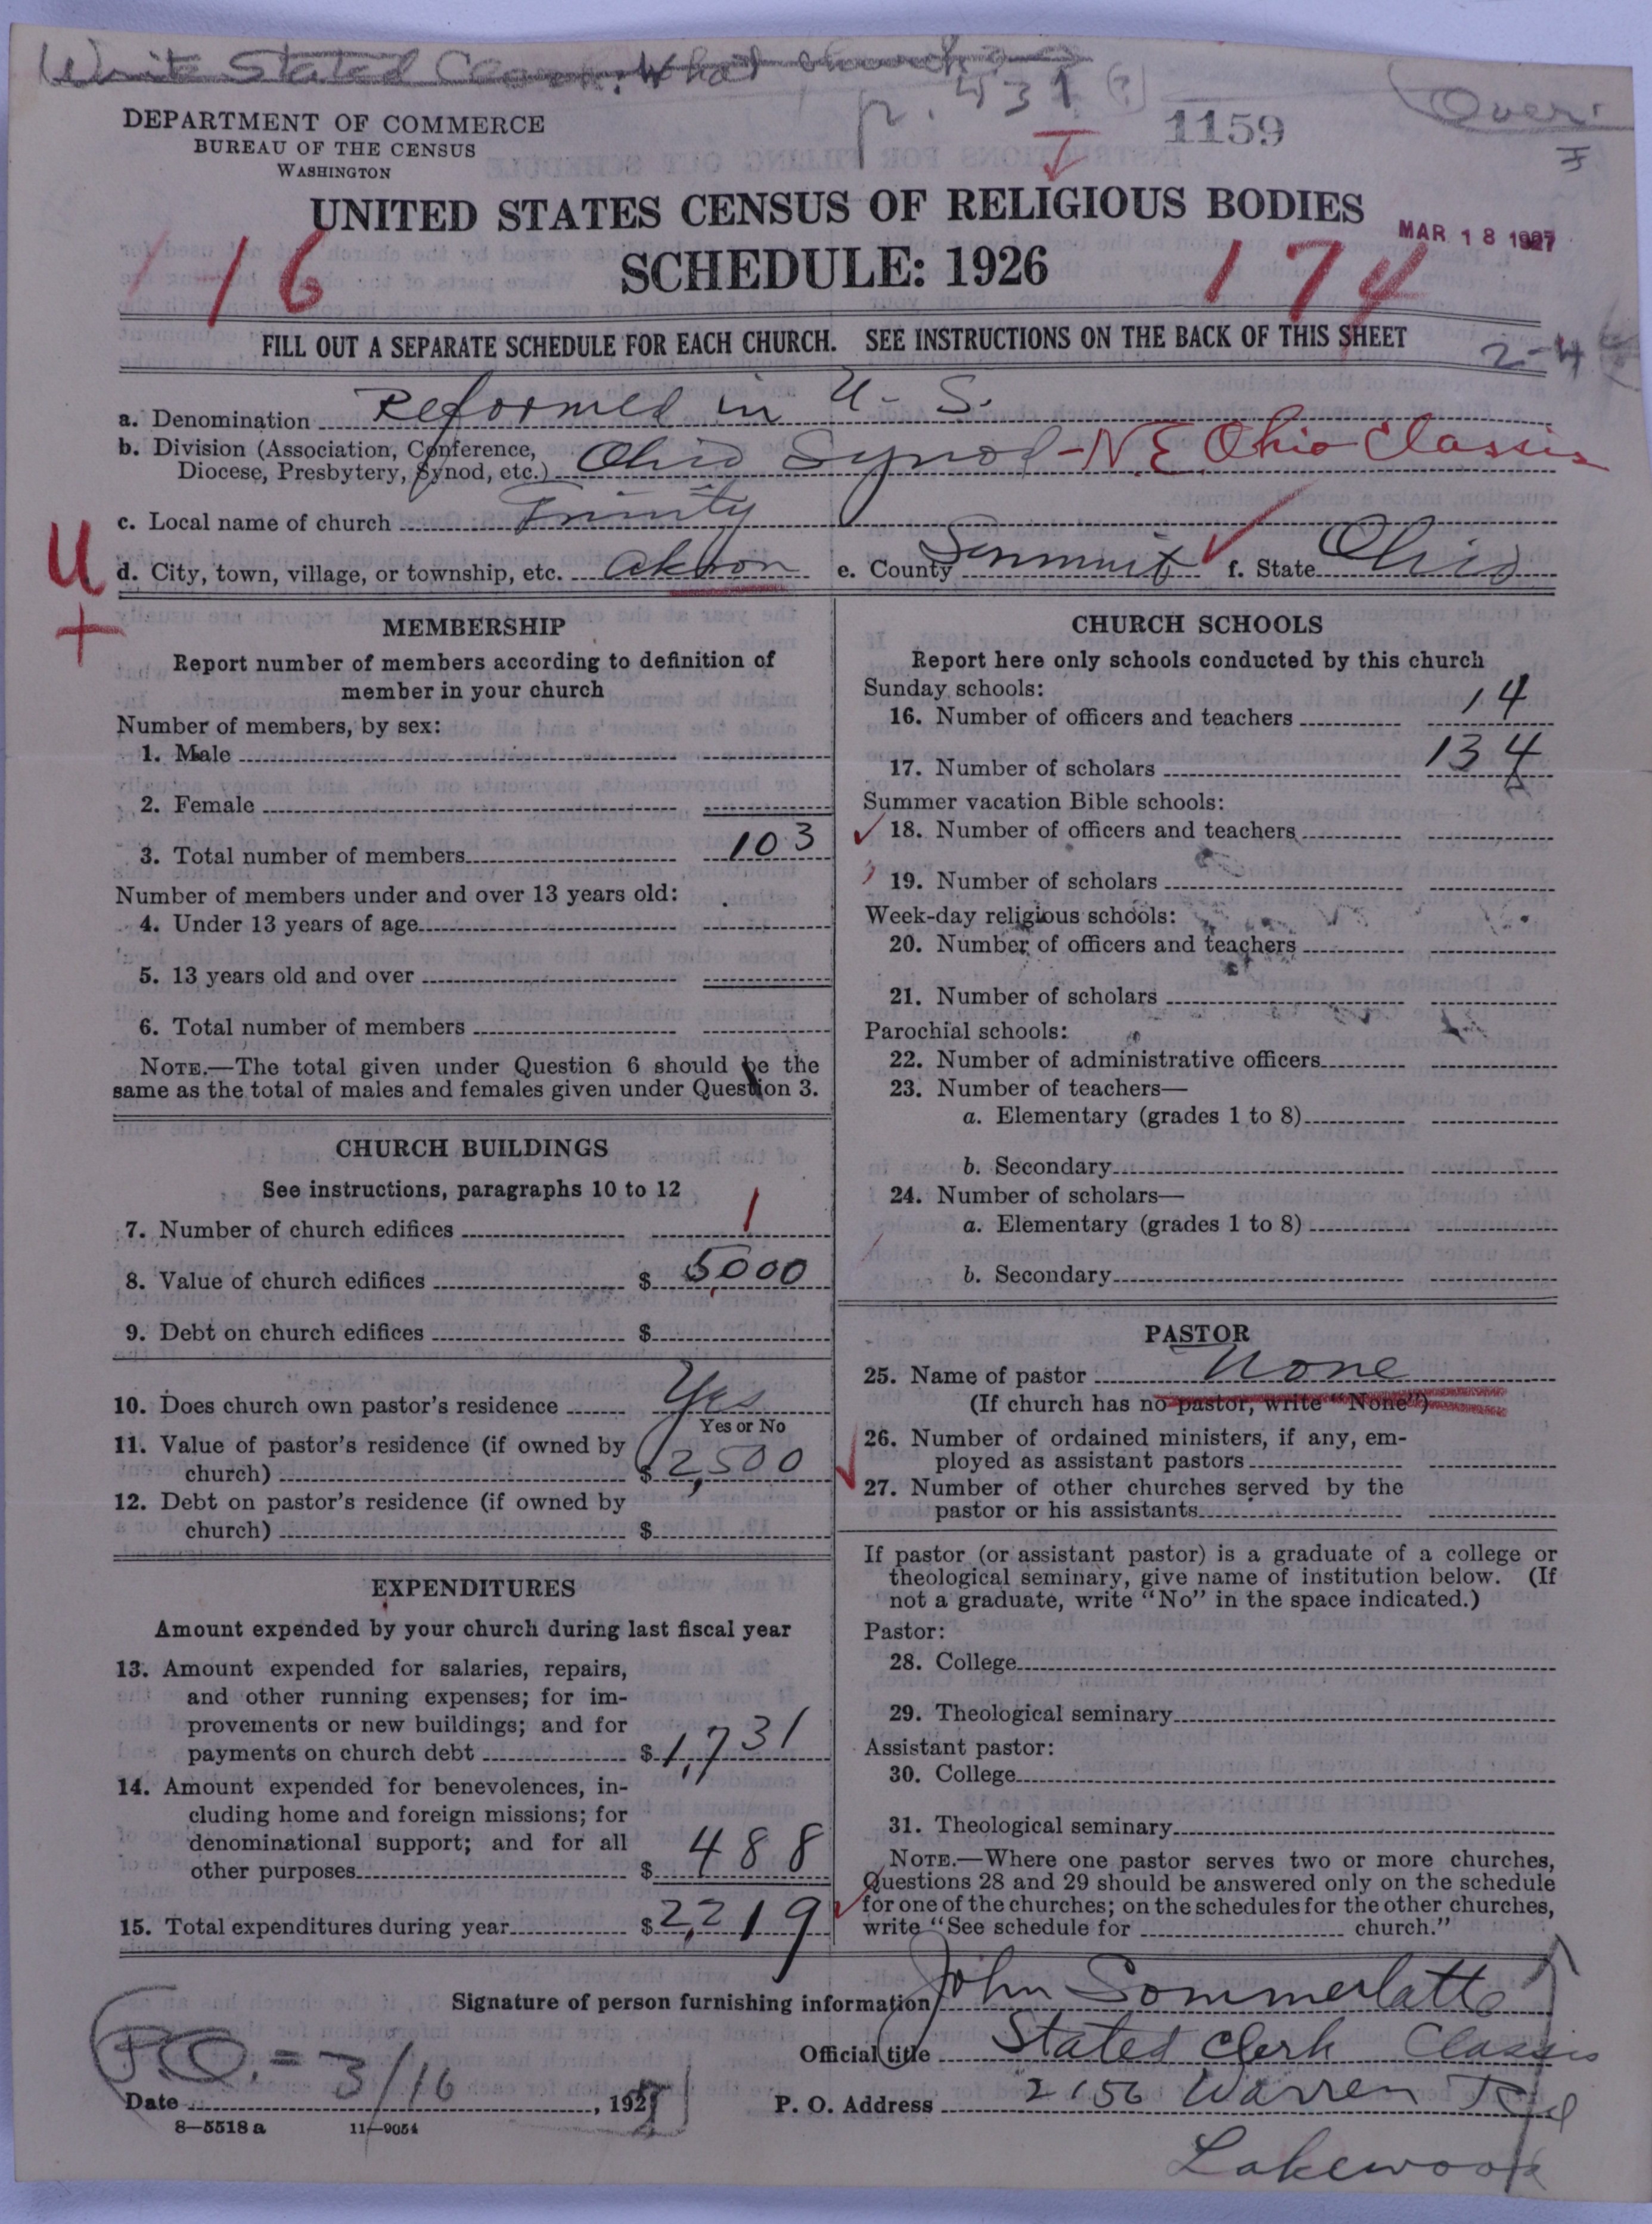 Write Stated Clerk. What church?
p. 431 (?)
Over.
DEPARTMENT OF COMMERCE
BUREAU OF THE CENSUS
WASHINGTON
1159
UNITED STATES CENSUS OF RELIGIOUS BODIES
MAR 18 1927
116
SCHEDULE: 1926
174
FILL OUT A SEPARATE SCHEDULE FOR EACH CHURCH. SEE INSTRUCTIONS ON THE BACK OF THIS SHEET
2-4
a. Denomination Reformed in U. S.
b. Division (Association, Conference,
Diocese, Presbytery, Synod, etc.) Ohio Synod - N.E. Ohio Classis
c. Local name of church Trinity
U
+
d. City, town, village, or township, etc. Akron e. County Summit f. State Ohio
MEMBERSHIP
Report number of members according to definition of
member in your church
Number of members, by sex:
1. Male
2. Female
3. Total number of members 103
Number of members under and over 13 years old:
4. Under 13 years of age
5. 13 years old and over
6. Total number of members
NOTE.—The total given under Question 6 should be the
same as the total of males and females given under Question 3.
CHURCH BUILDINGS
See instructions, paragraphs 10 to 12
7. Number of church edifices 1
8. Value of church edifices $ 5,000
9. Debt on church edifices $
10. Does church own pastor's residence Yes
Yes or No
11. Value of pastor's residence (if owned by
church) $ 2,500
12. Debt on pastor's residence (if owned by
church) $
EXPENDITURES
Amount expended by your church during last fiscal year
13. Amount expended for salaries, repairs,
and other running expenses; for im-
provements or new buildings; and for
payments on church debt $ 1,731
14. Amount expended for benevolences, in-
cluding home and foreign missions; for
denominational support; and for all
other purposes $ 488
15. Total expenditures during year $ 2,219
CHURCH SCHOOLS
Report here only schools conducted by this church
Sunday schools:
16. Number of officers and teachers 14
17. Number of scholars 134
Summer vacation Bible schools:
18. Number of officers and teachers
19. Number of scholars
Week-day religious schools:
20. Number of officers and teachers
21. Number of scholars
Parochial schools:
22. Number of administrative officers
23. Number of teachers—
a. Elementary (grades 1 to 8)
b. Secondary
24. Number of scholars—
a. Elementary (grades 1 to 8)
b. Secondary
PASTOR
25. Name of pastor None
(If church has no pastor, write "None")
26. Number of ordained ministers, if any, em-
ployed as assistant pastors
27. Number of other churches served by the
pastor or his assistants
If pastor (or assistant pastor) is a graduate of a college or
theological seminary, give name of institution below. (If
not a graduate, write "No" in the space indicated.)
Pastor:
28. College
29. Theological seminary
Assistant pastor:
30. College
31. Theological seminary
NOTE.—Where one pastor serves two or more churches,
Questions 28 and 29 should be answered only on the schedule
for one of the churches; on the schedules for the other churches,
write "See schedule for church."
Signature of person furnishing information John Sommerlatte
Official title Stated Clerk Classis
P.O. =
Date 3/16, 1927
P. O. Address 2156 Warren Rd
Lakewood
8—5518 a 11—9054